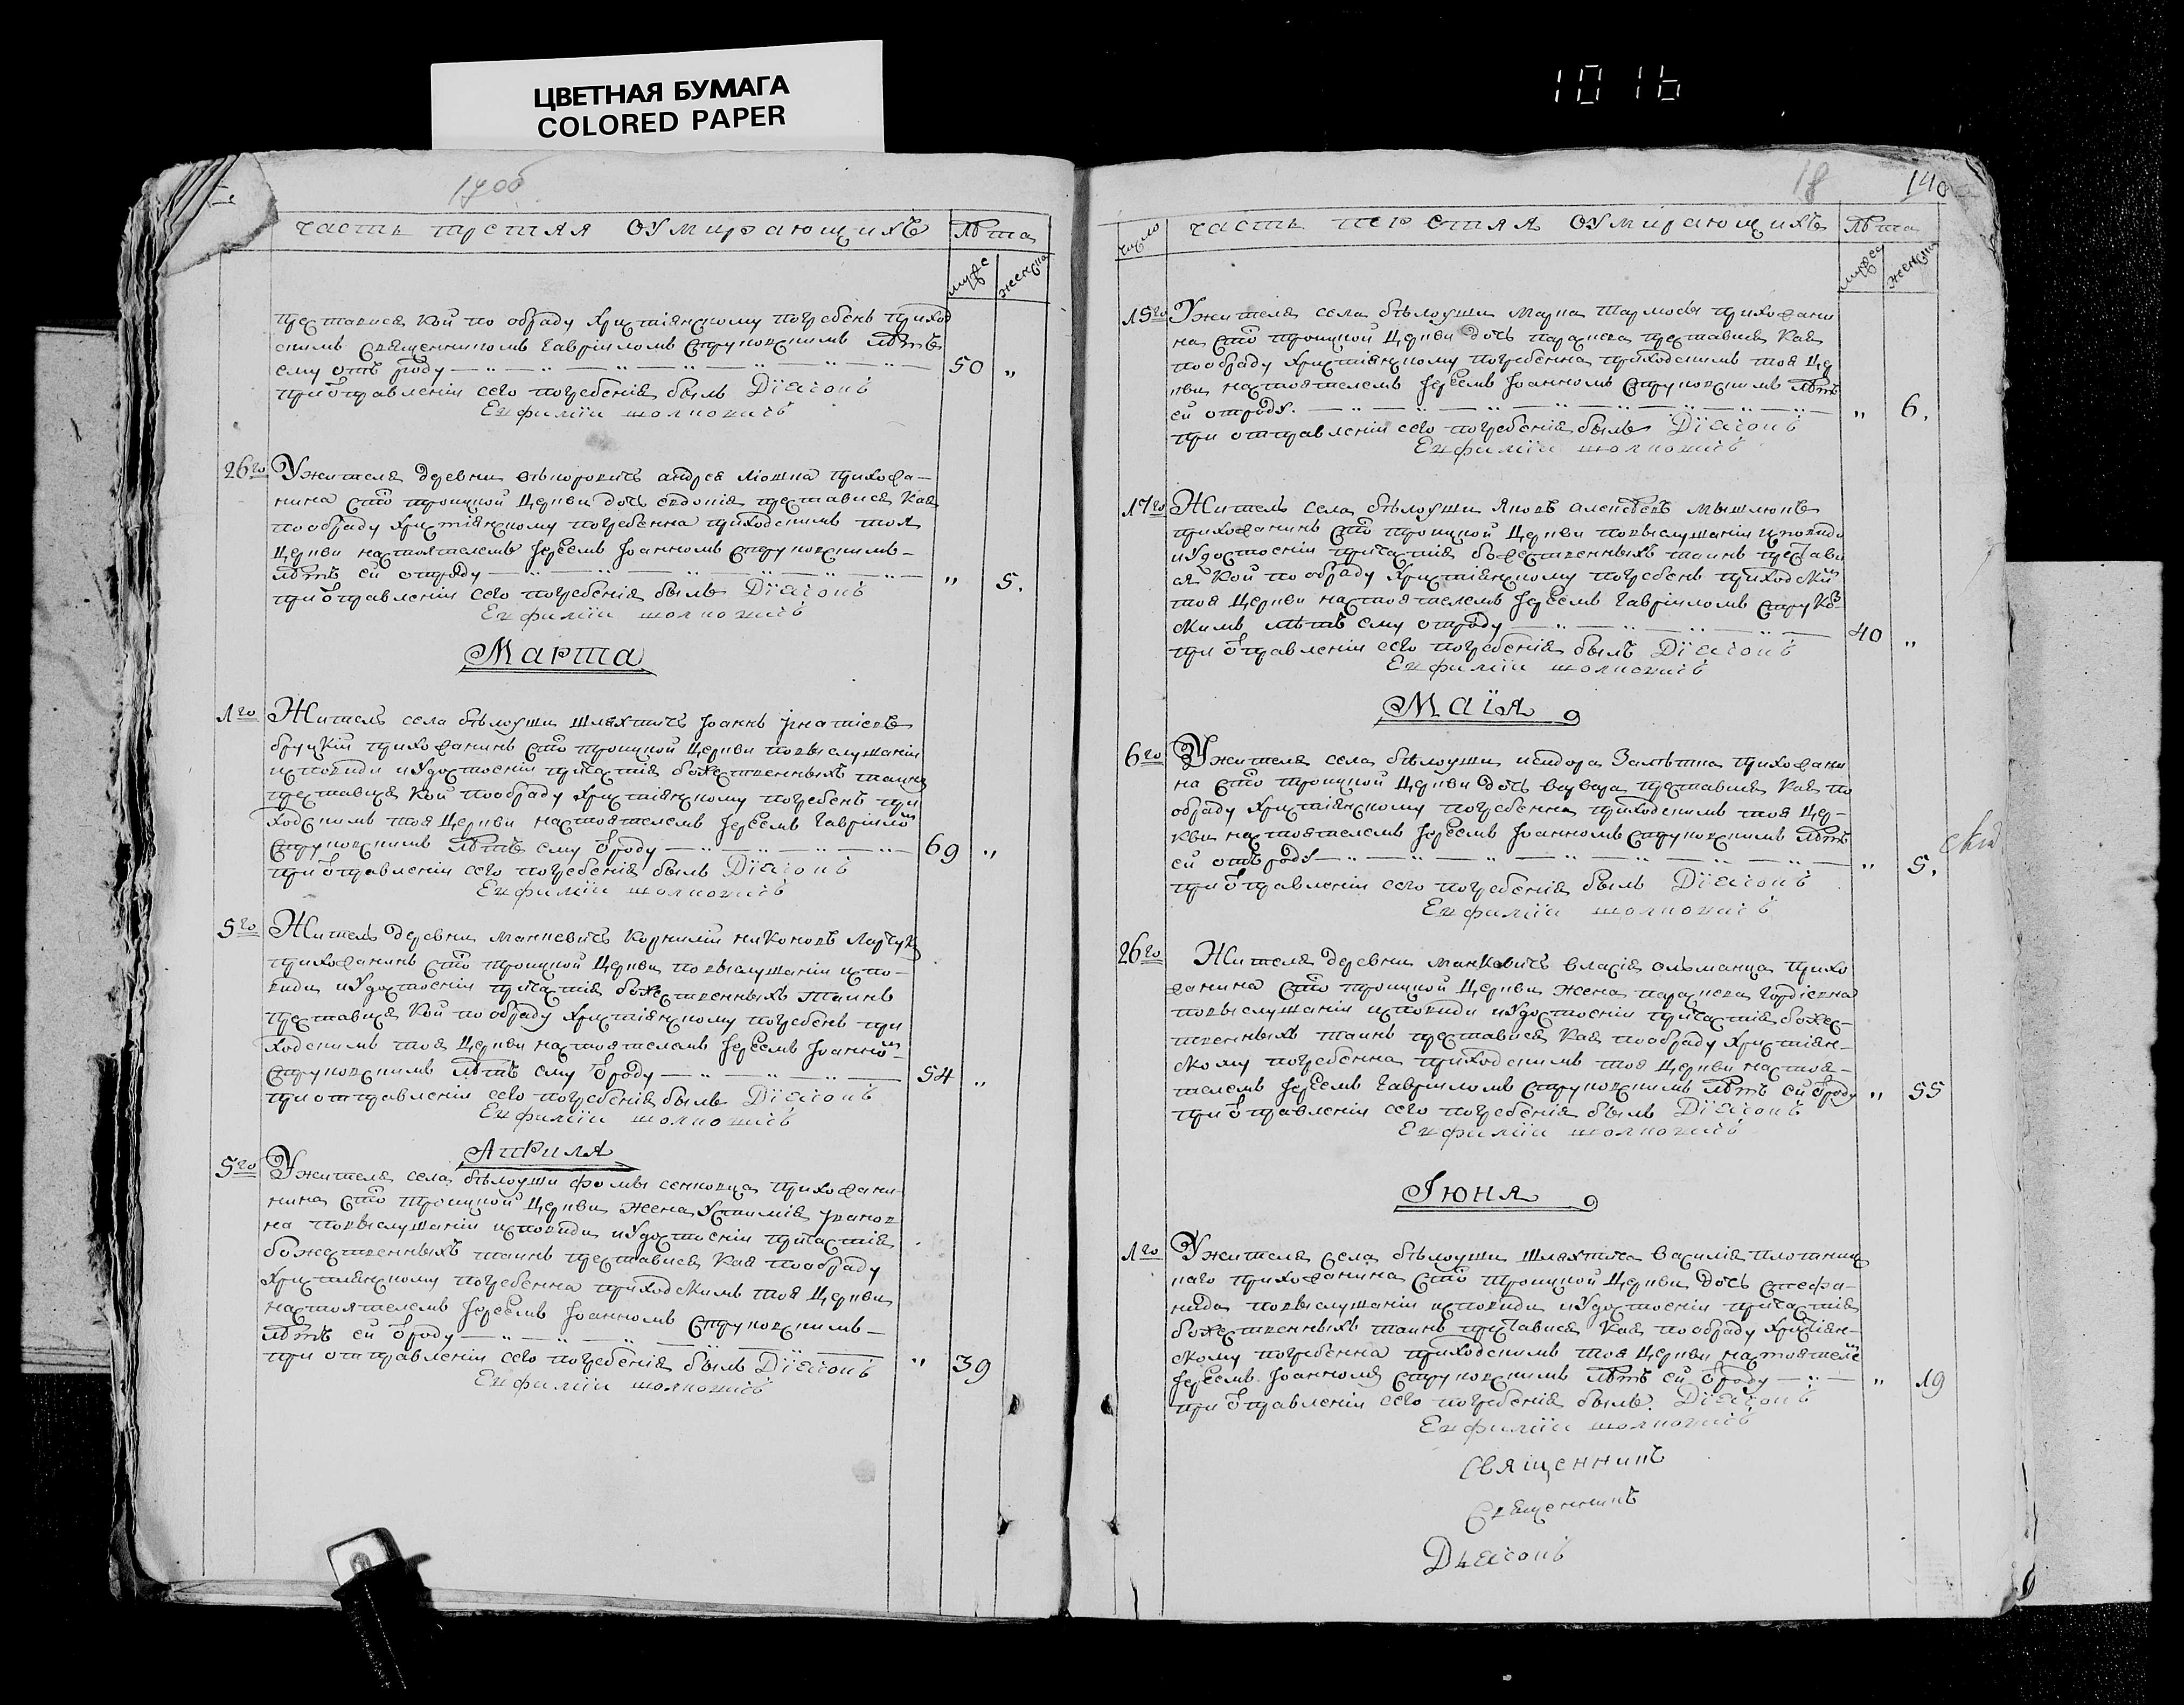 ЦВЕТНАЯ БУМАГА
COLORED PAPER
10 16
часть третяя оумирающихъ
Лѣта
мужс
женска
преставися кой по обряду христіянскому погребенъ приход
скимъ священникомъ Гавріиломъ Струковскимъ лѣтъ
ему отъ роду
50 „
при отправленіи сего погребенія былъ Діаконъ
Евфимій
26го
Ужителя деревни андрея приხожа-
нина сто троицкой Церкви дочь евдокія преставися Кая
пообряду христіянскому погребенна приходскимъ тоя
Церкви настоятелемъ Іереемъ Іоанномъ Струковскимъ
лѣтъ ей отроду
„ 5.
при отправленіи сего погребенія былъ Діаконъ
Евфимій
Марта
1го
Житель села бѣлоуши шляхтичъ Іоаннъ Ігнатіевъ
бруцкій прихожанинъ сто троицкой Церкви повыслушаніи
исповиди иУдостоеніи причастія божественныхъ таинъ
преставися Кой пообряду христіянскому погребенъ при
ходскимъ тоя Церкви настоятелемъ Іереемъ Гавріиломъ
Струковскимъ лѣтъ ему отроду
69 „
при отправленіи сего погребенія былъ Діаконъ
Евфимій
5го
Житель деревни манкевичъ Корнилій никоновъ
прихожанинъ сто троицкой Церкви повыслушаніи испо-
види иУдостоеніи причастія божественныхъ таинъ
преставися Кой пообряду христіянскому погребенъ при
ходскимъ тоя Церкви настоятелемъ Іереемъ Іоанномъ
Струковскимъ лѣтъ ему отроду
54 „
при отправленіи сего погребенія былъ Діаконъ
Евфимій
Априля
5го
Ужителя села бѣлоуши фомы сенковца прихожани-
нина сто троицкой Церкви жена Устимія Іванов
на повыслушаніи исповиди иУдостоеніи причастія
божественныхъ таинъ преставися Кая пообряду
христіянскому погребенна приходскимъ тоя Церкви
настоятелемъ Іереемъ Іоанномъ Струковскимъ
лѣтъ ей отроду
при отправленіи сего погребенія былъ Діаконъ
„ 39
Евфимій
18
140
число
часть третяя оумирающихъ
Лѣта
мужеска
женска
15го
Ужителя села бѣлоуши марка прихожани
на сто троицкой Церкви дочь параскева преставися Кая
пообряду христіянскому погребенна приходскимъ тоя Цер
кви настоятелемъ Іереемъ Іоанномъ Струковскимъ лѣтъ
ей отроду.
„ 6.
при отправленіи сего погребенія былъ Діаконъ
Евфимій
17го
Житель села бѣлоуши Яковъ алексѣевъ
прихожанинъ сто троицкой Церкви повыслушаніи исповиди
иУдостоеніи причастія божественныхъ таинъ престави
ся Кой пообряду христіянскому погребенъ приходскимъ
тоя Церкви настоятелемъ Іереемъ Гавріиломъ Струков
скимъ лѣтъ ему отроду
40 „
при отправленіи сего погребенія былъ Діаконъ
Евфимій
Маія
6го
Ужителя села бѣлоуши исидора прихожани
на сто троицкой Церкви дочь варвара преставися Кая по
обряду христіянскому погребенна приходскимъ тоя Цер-
кви настоятелемъ Іереемъ Іоанномъ Струковскимъ лѣтъ
ей отъ роду
„ 5.
при отправленіи сего погребенія былъ Діаконъ
Евфимій
26го
Жителя деревни манкевичъ власія ольманца прихо
жанина сто троицкой Церкви жена параскева Гордіевна
повыслушаніи исповиди иУдостоеніи причастія божес-
твенныхъ таинъ преставися Кая пообряду христіян-
скому погребенна приходскимъ тоя Церкви настоя-
телемъ Іереемъ Гавріиломъ Струковскимъ лѣтъ ей отроду
„ 55
при отправленіи сего погребенія былъ Діаконъ
Евфимій
Іюня
1го
Ужителя села бѣлоуши шляхтича василія плотниц
каго прихожанина сто троицкой Церкви дочь стефа-
нида повыслушаніи исповиди иУдостоеніи причастія
божественныхъ таинъ преставися Кая пообряду христіян-
скому погребенна приходскимъ тоя Церкви настоятелемъ
Іереемъ Іоанномъ Струковскимъ лѣтъ ей отроду
„ 19
при отправленіи сего погребенія былъ Діаконъ
Евфимій
священникъ
Священникъ
Діаконъ